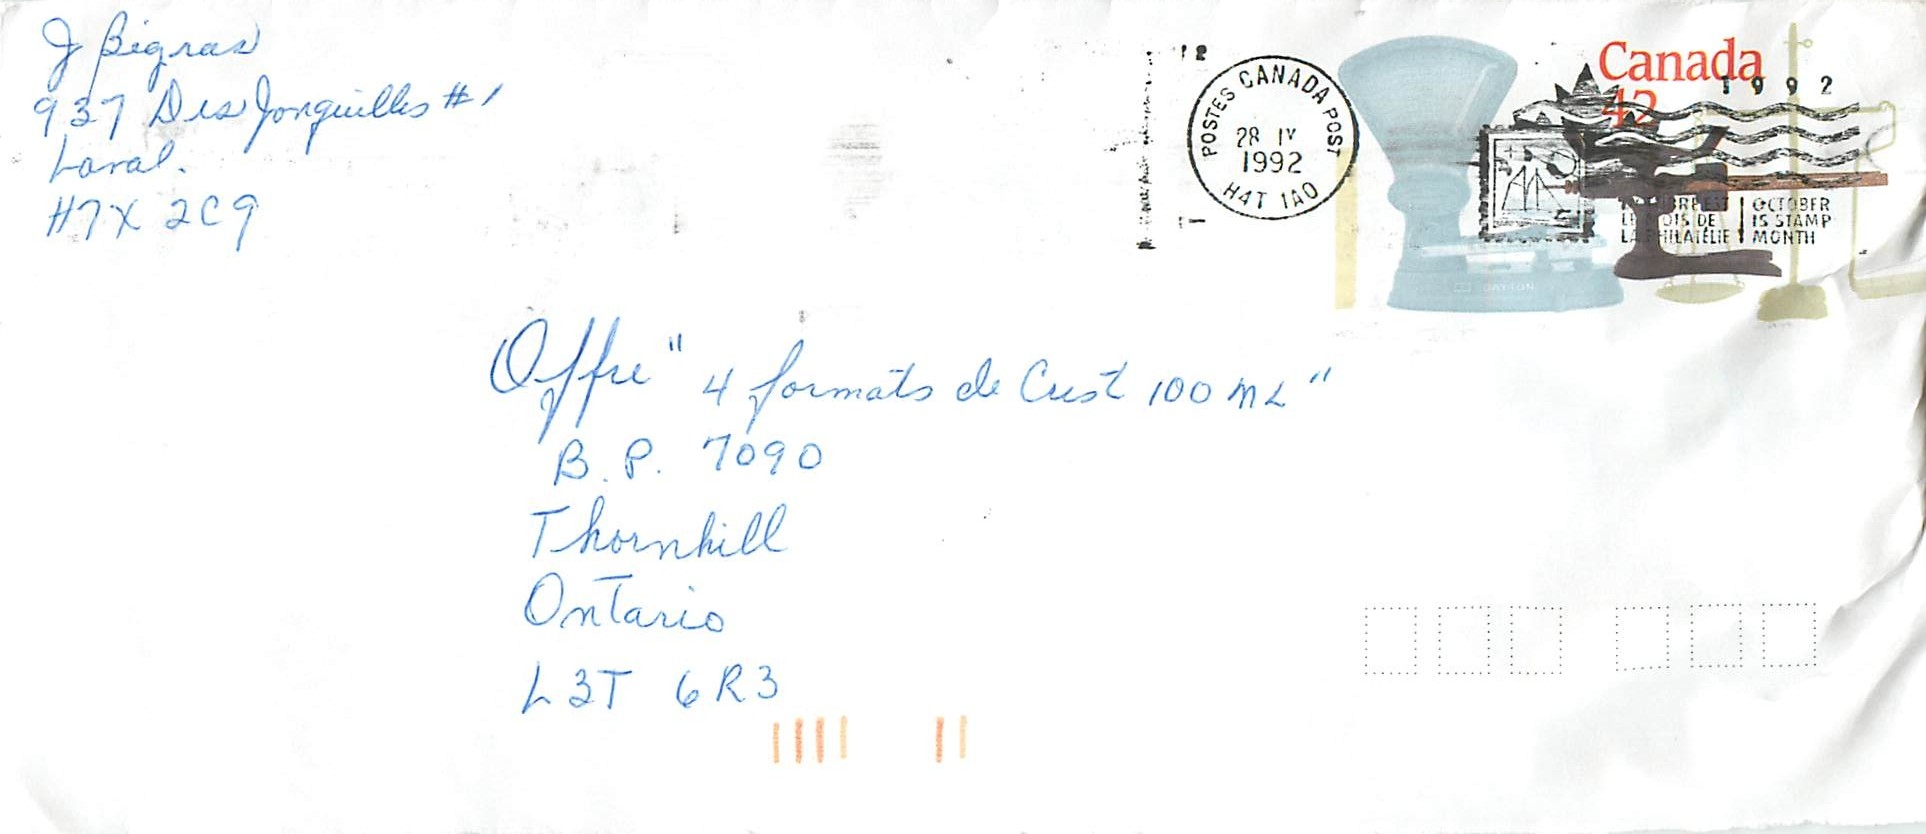 J Bigras
937 Des Jonquilles #1
Laval.
H7X 2C9
POSTES CANADA POST
28 IV
1992
H4T 1A0
Canada
42
1992
LE MOIS DE
LA PHILATÉLIE
OCTOBER
IS STAMP
MONTH
DAYTON
Offre "4 formats de Crest 100 mL"
B.P. 7090
Thornhill
Ontario
L3T 6R3